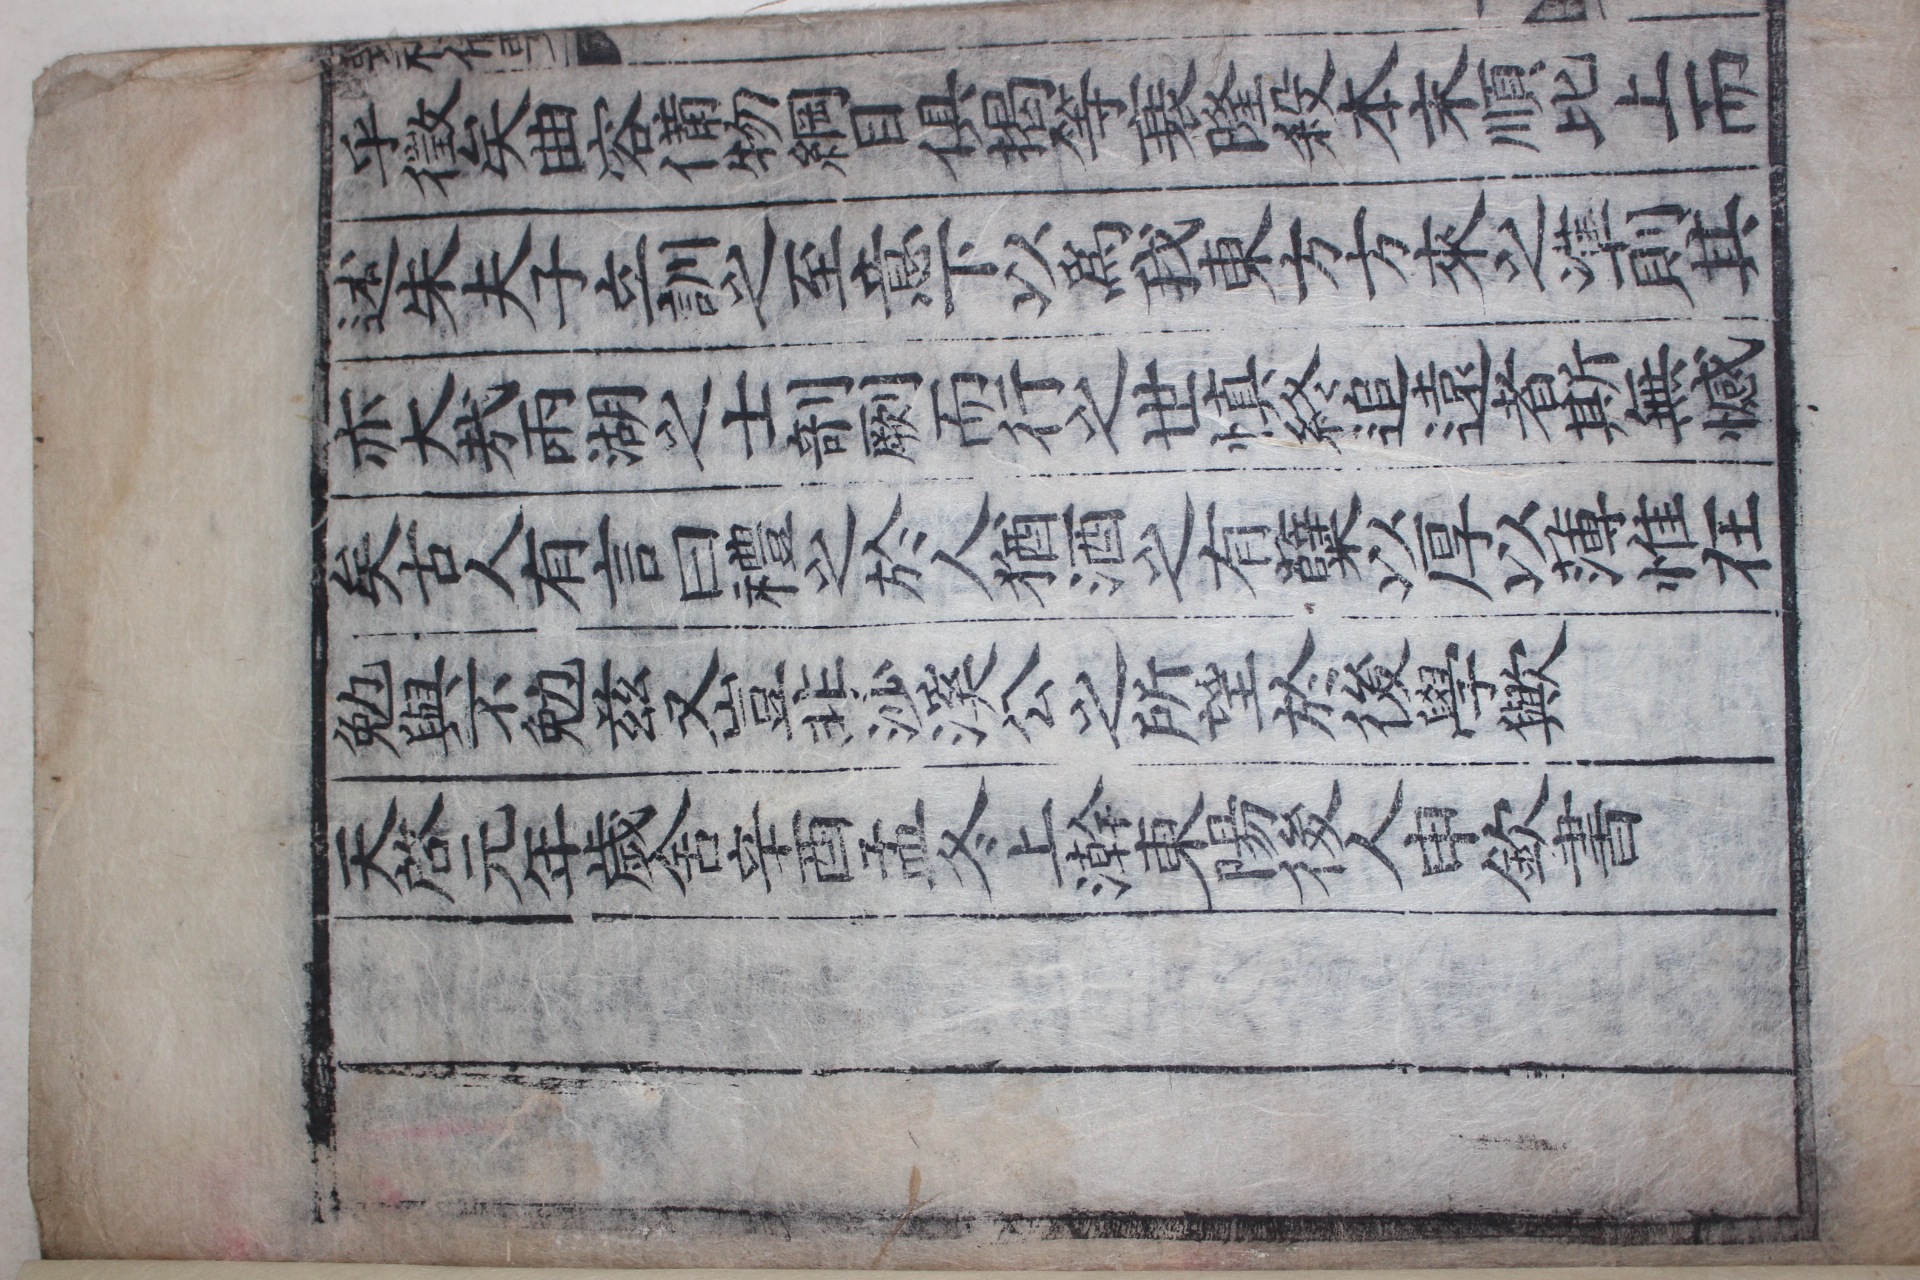 乎徵矣由容備物綱目俱揭等義隆殺本末順比上而
述朱夫子立訓之至意下以爲我東方方來之準則其
亦大哉兩湖之士剞劂而行之世愼終追遠者斯無憾
矣古人有言曰禮之於人猶酒之有糵以厚以薄惟在
勉與不勉茲又豈非沙溪公之所望於後學歟
天啓元年歲舍辛酉孟冬上澣東陽後人申欽書